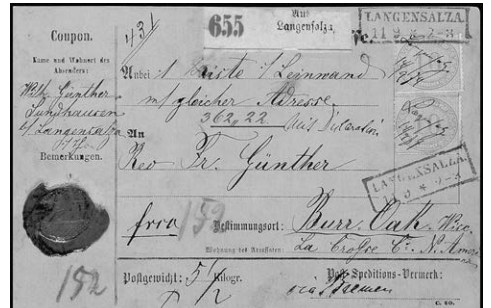 Coupon.
Name und Wohnort des Absenders:
Wilh. Günther
Sundhausen
b/ Langensalza
Bemerkungen.
152
431
655
Aus
Langensalza
LANGENSALZA
Anbei 1 Kiste 1/ Leinwand
m/ gleicher Adresse.
362,22 mit Declaration
An
Rev Fr. Günther
LANGENSALZA
frco 152 Bestimmungsort: Burr Oak, Wisc.
Wohnung des Adressaten:
La Crosse Cº N. Amer
Postgewicht: 5 Kilogr.
Post-Speditions-Vermerk:
via Bremen
C. 80.